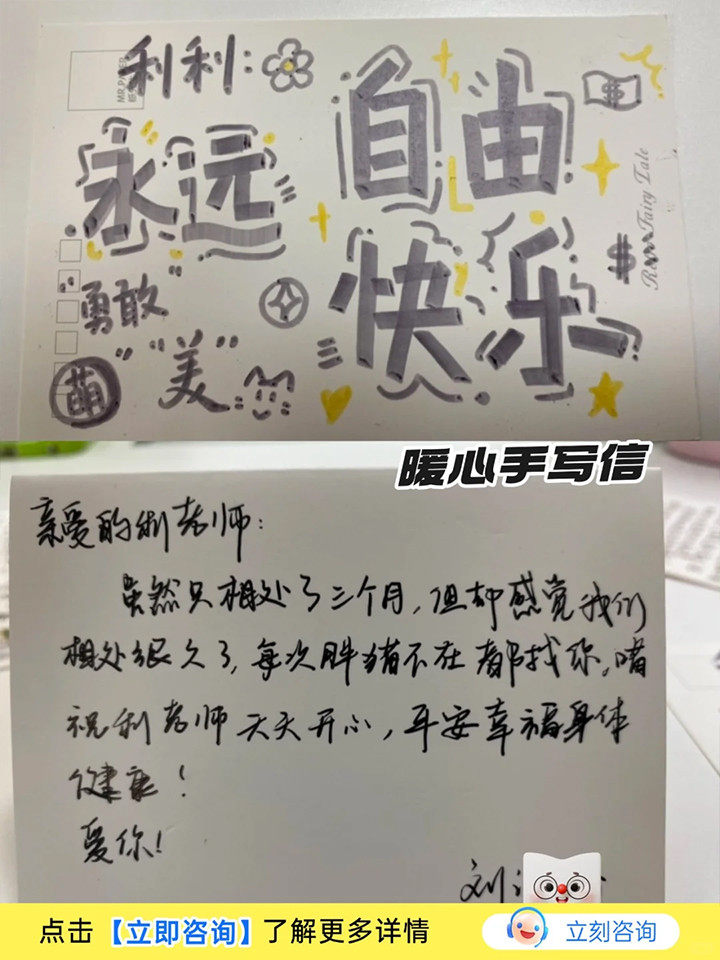 利利:
MR.PAPER
自由
永远
快乐
"勇敢"
萌
"美"
$
$
Rose Fairy Tale
暖心手写信
亲爱的利老师:
虽然只相处了三个月,但却感觉我们
相处很久了,每次胖猪不在都找你。嘻
祝利老师天天开心,平安幸福身体
健康!
爱你!
刘
点击【立即咨询】了解更多详情
立刻咨询